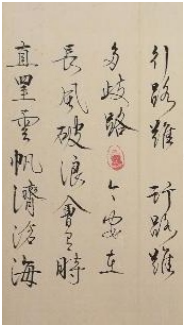 行路難 行路難
多歧路 今安在
長風破浪會有時
直掛雲帆濟滄海